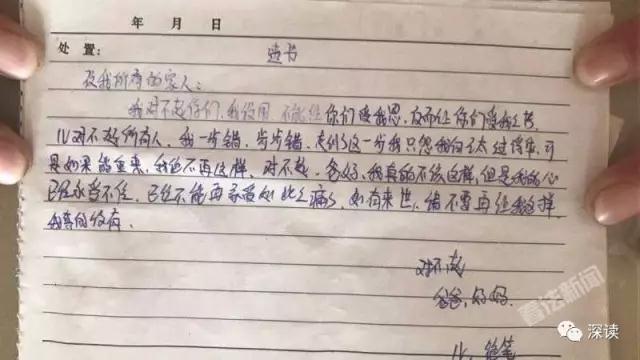 年 月 日
处置： 遗书
致我所有的家人：
我对不起你们，我没用，不能让你们
对不起所有人，我一步错，步步错，走到了这一步我只怨我自己太过
是如果能重来，我绝不再这样，对不起，爸妈，我真的不该这样，但是我的心
已经承受不住，已经不能再承受如此之痛了，如有来世，请不要再让我这样
我真的没有
对不起
爸爸，妈妈
绝笔
看法新闻
深读